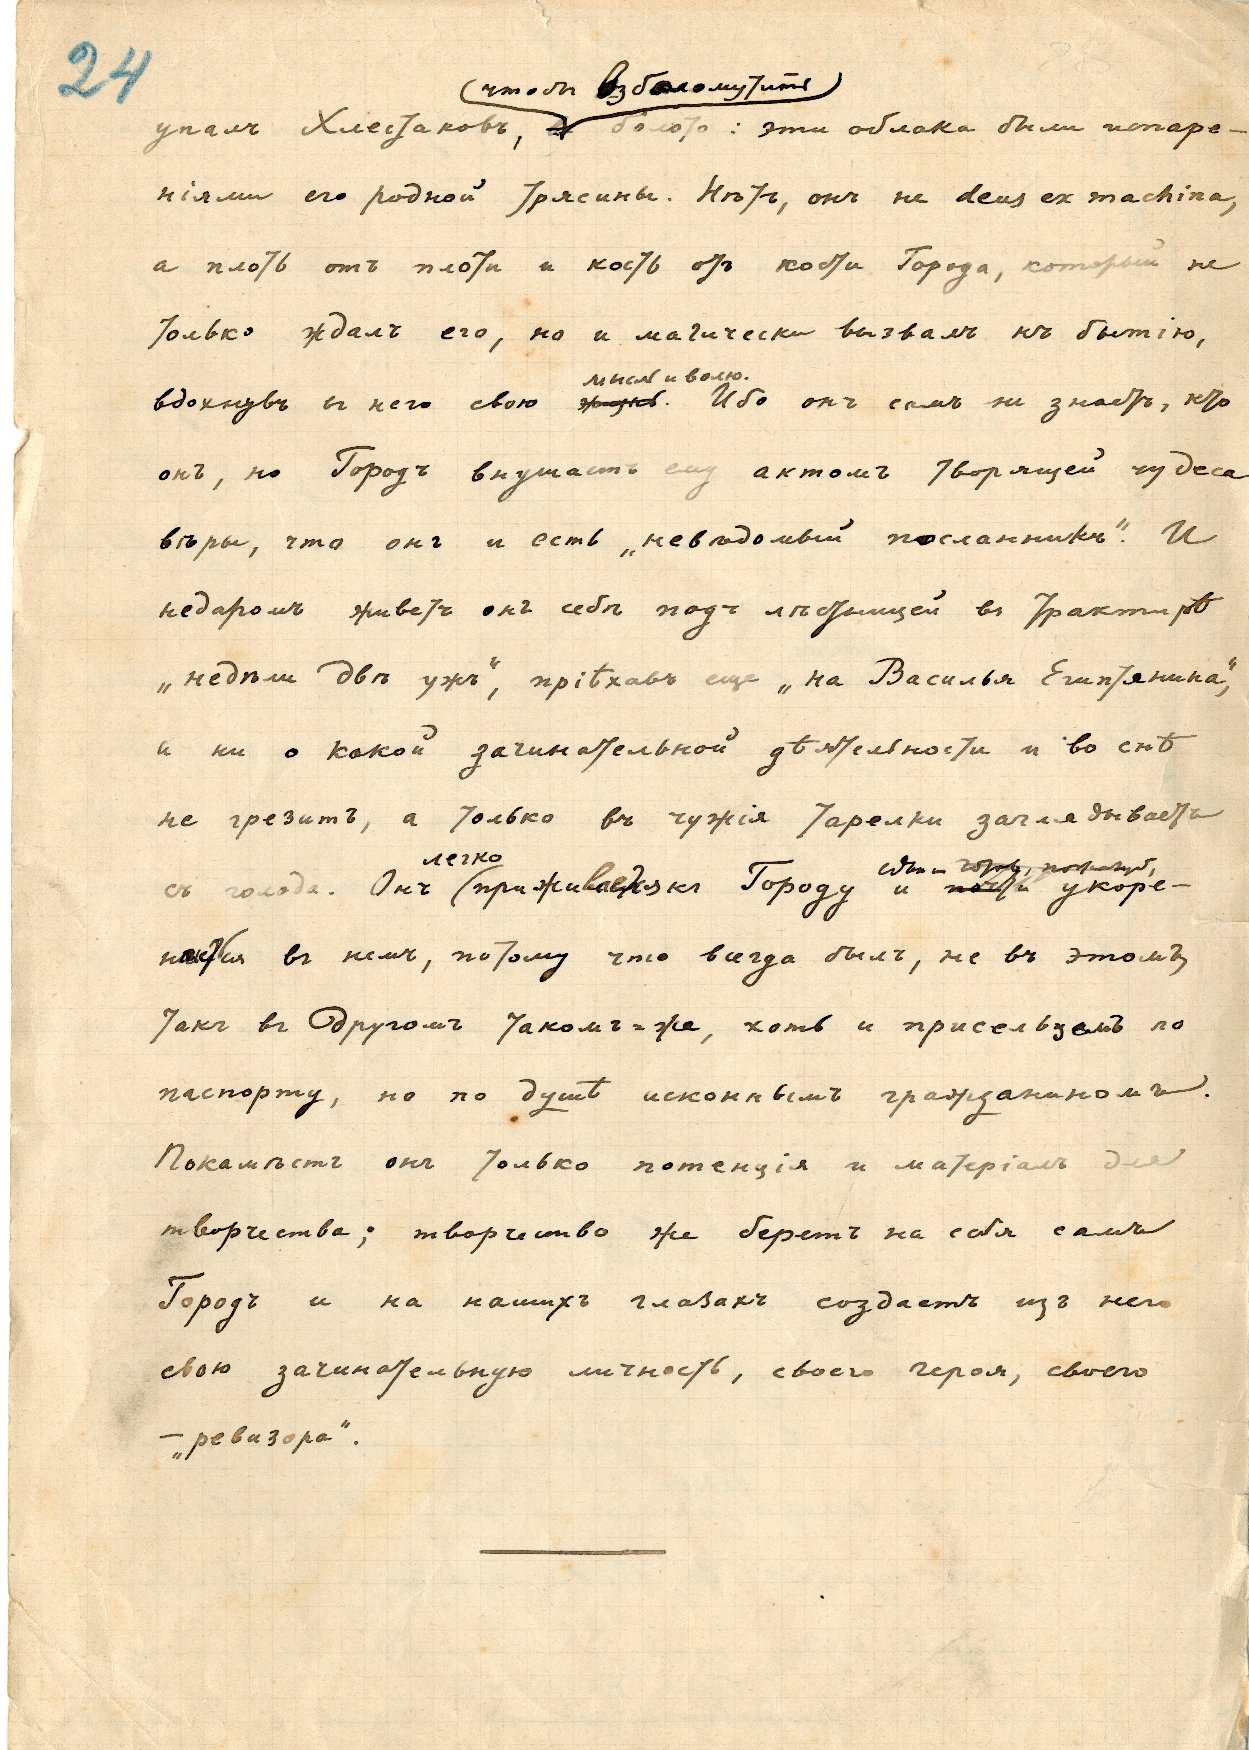 24
(чтобы взбаломутить)
упалъ Хлестаковъ, болото: эти облака были испаре-
нiями его родной трясины. Нѣтъ, онъ не deus ex machina,
а плоть отъ плоти и кость отъ кости Города, который не
только ждалъ его, но и магически вызвалъ къ бытiю,
мысль и волю.
вдохнувъ въ него свою жизнь. Ибо онъ самъ не знаетъ, кто
онъ, но Городъ внушаетъ ему актомъ творящей чудеса
вѣры, что онъ и есть „невѣдомый посланникъ". И
недаромъ живетъ онъ себѣ подъ лѣстницей въ трактирѣ
„недѣли двѣ ужъ", прiѣхавъ еще „на Василья Египтянина",
и ни о какой зачинательной дѣятельности и во снѣ
не грезитъ, а только въ чужiя тарелки заглядываетъ
легко
съ голода. Онъ приживается къ Городу и почти укоре-
няется въ немъ, потому что всегда былъ, не въ этомъ,
такъ въ другомъ такомъ=же, хоть и присельцемъ по
паспорту, но по душѣ исконнымъ гражданиномъ.
Покамѣстъ онъ только потенцiя и матерiалъ для
творчества; творчество же беретъ на себя самъ
Городъ и на нашихъ глазахъ создаетъ изъ него
свою зачинательную личность, своего героя, своего
—„ревизора".